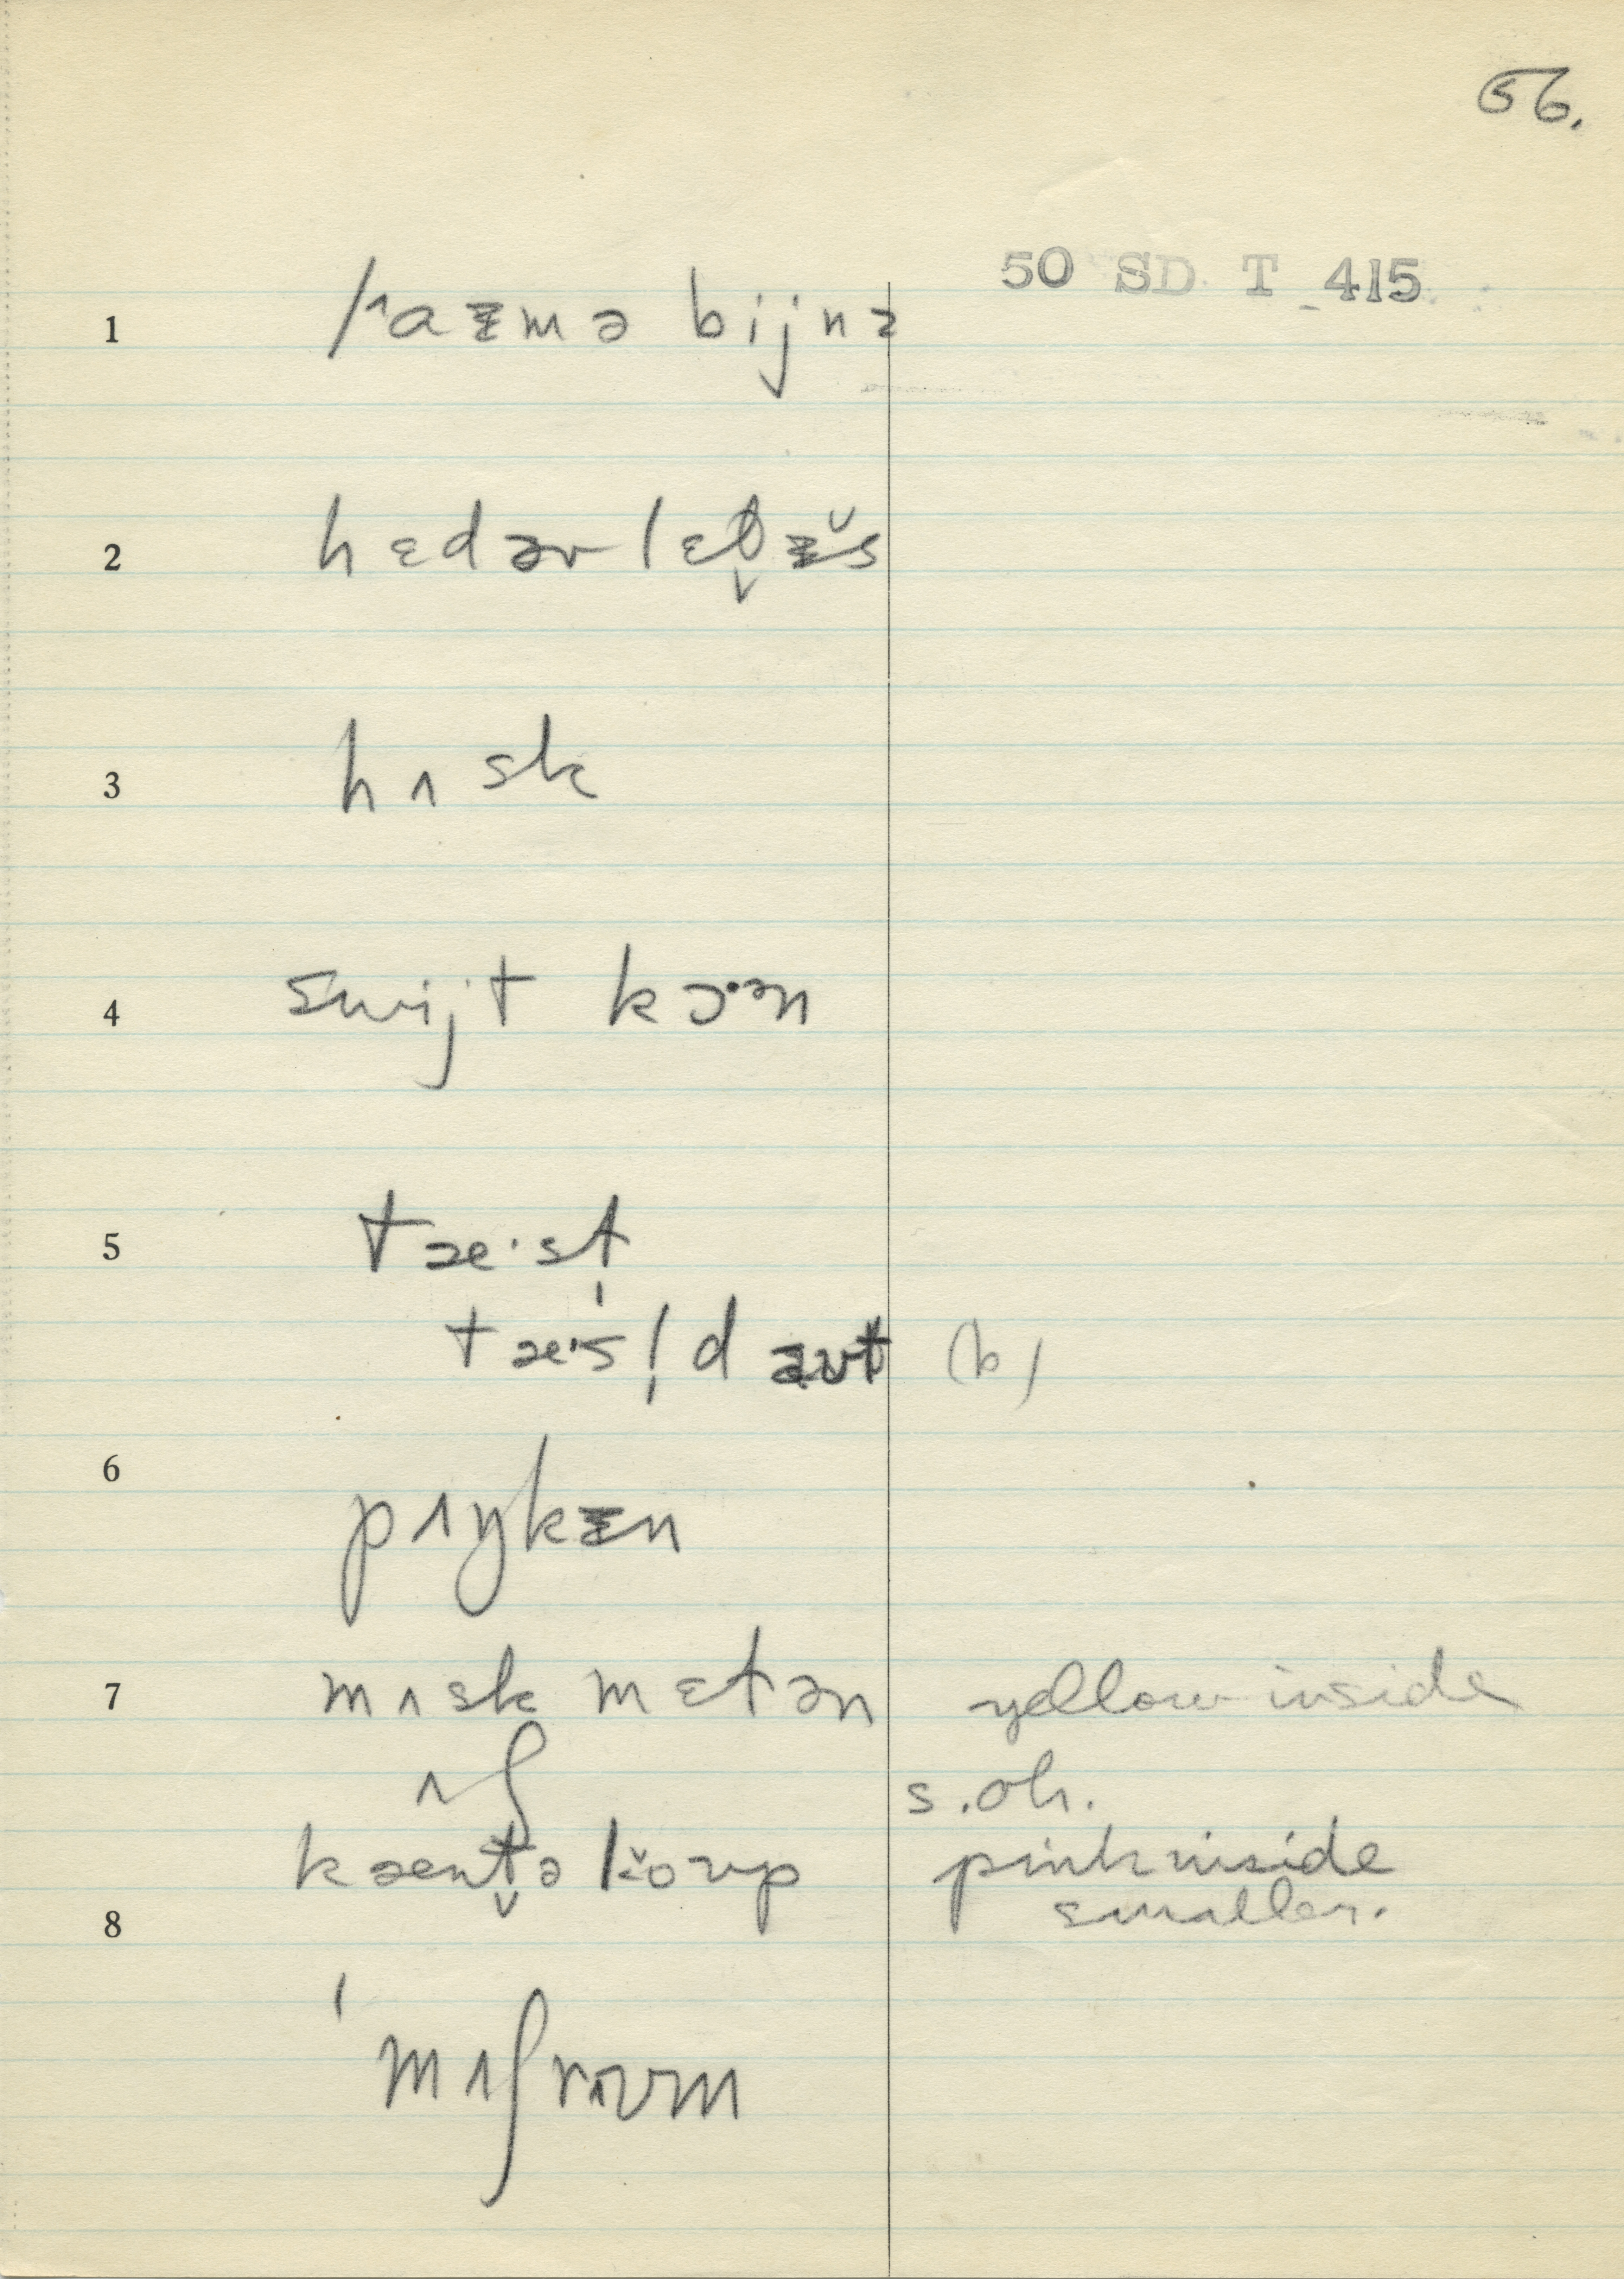 56.
50 SD T 415
1 lˆaᵻmə bijnz
2 hɛdəv lɛt̬ᵻ̌s
3 hʌsk
4 swijt kɔ·ən
5 tæ·st̩
tæ·sl̩d aʊt (b)
6 pʌŋkᵻn
7 mʌskmɛtən yellow inside
ʌʃ s. oh.
kæent̬əlǒʊp pink inside
smaller.
8
ˈmʌʃrʊʊm